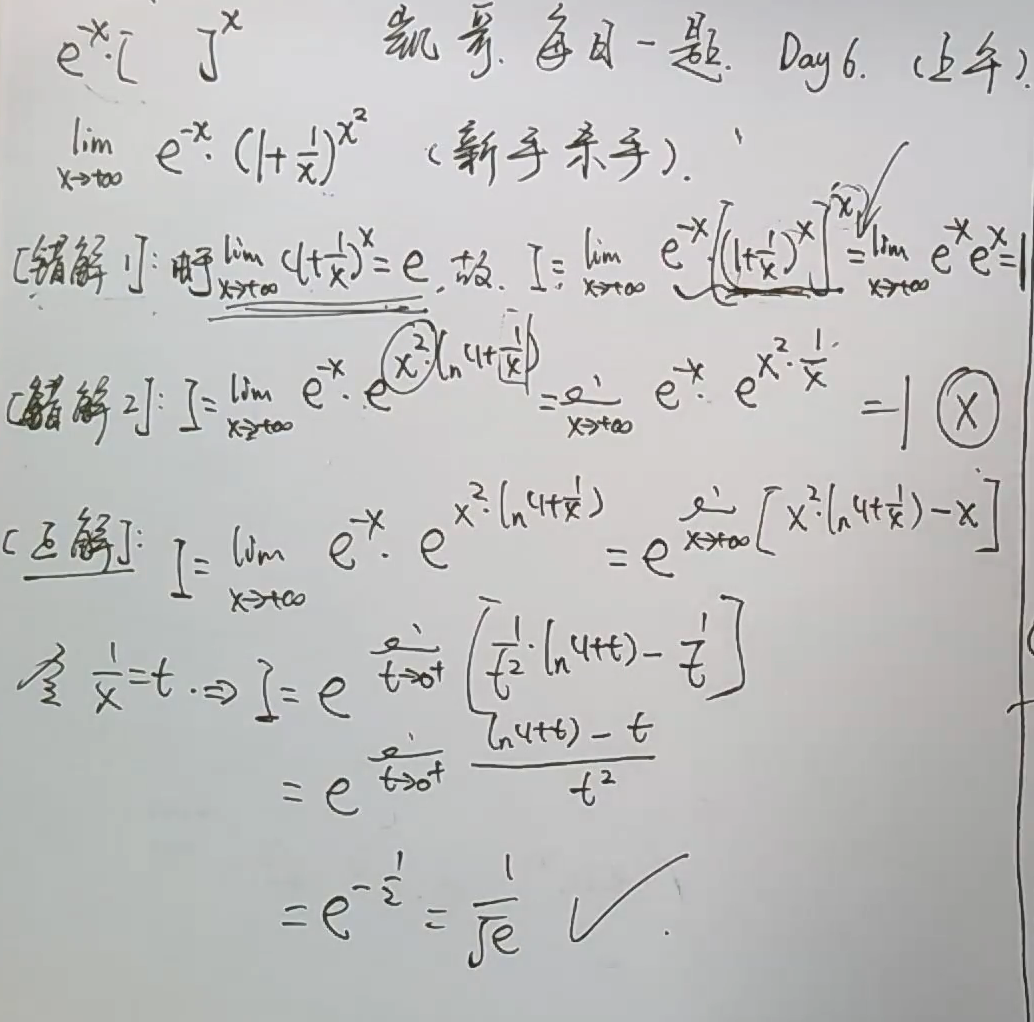 e^{-x}·[ ]^x 凯哥.每日一题. Day 6. (上午).
lim_{x→+∞} e^{-x}·(1+1/x)^{x^2} (新手杀手).
[错解1]: 由于 lim_{x→+∞} (1+1/x)^x = e, 故. I = lim_{x→+∞} e^{-x}·[(1+1/x)^x]^x = lim_{x→+∞} e^{-x} e^x = 1
[错解2]: I = lim_{x→+∞} e^{-x}·e^{x^2·ln(1+1/x)} = lim_{x→+∞} e^{-x}·e^{x^2·1/x} = 1 (×)
[正解]: I = lim_{x→+∞} e^{-x}·e^{x^2·ln(1+1/x)} = e^{lim_{x→+∞} [x^2·ln(1+1/x) - x]}
令 1/x = t. ⇒ I = e^{lim_{t→0^+} [1/t^2·ln(1+t) - 1/t]}
= e^{lim_{t→0^+} (ln(1+t) - t)/t^2}
= e^{-1/2} = 1/√e ✓.